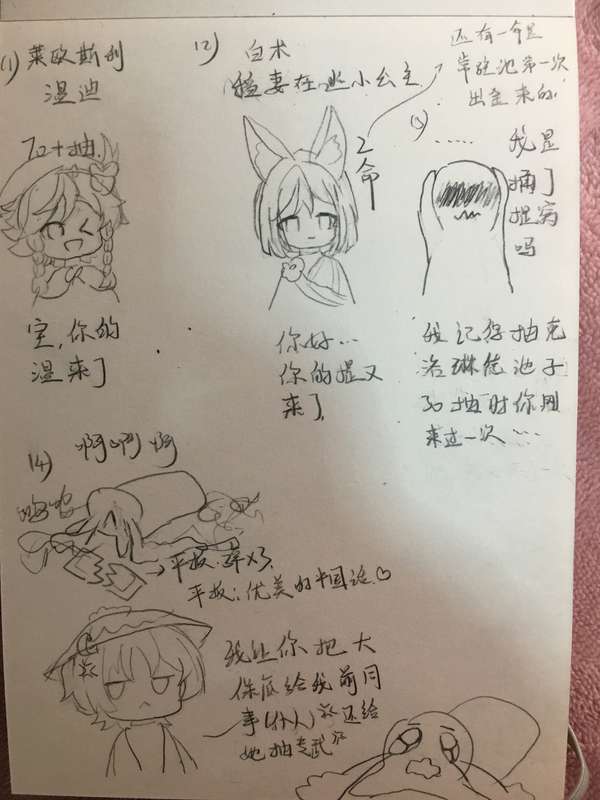 (1) 莱欧斯利
温迪
70+抽.
室,你的
温来了
12) 白术
稻妻在逃小公主
2命
还有一个是
常驻池第一次
出金来的.
你好…
你的提又
来了.
……
我是
捅了
提窝
吗
我记得抽克
洛琳德池子
30抽时你刚
来过一次……
14) 啊啊啊
平板:
平板:优美的中国话.♡
我让你把大
保底给我前同
事(仆人)还给
她抽专武